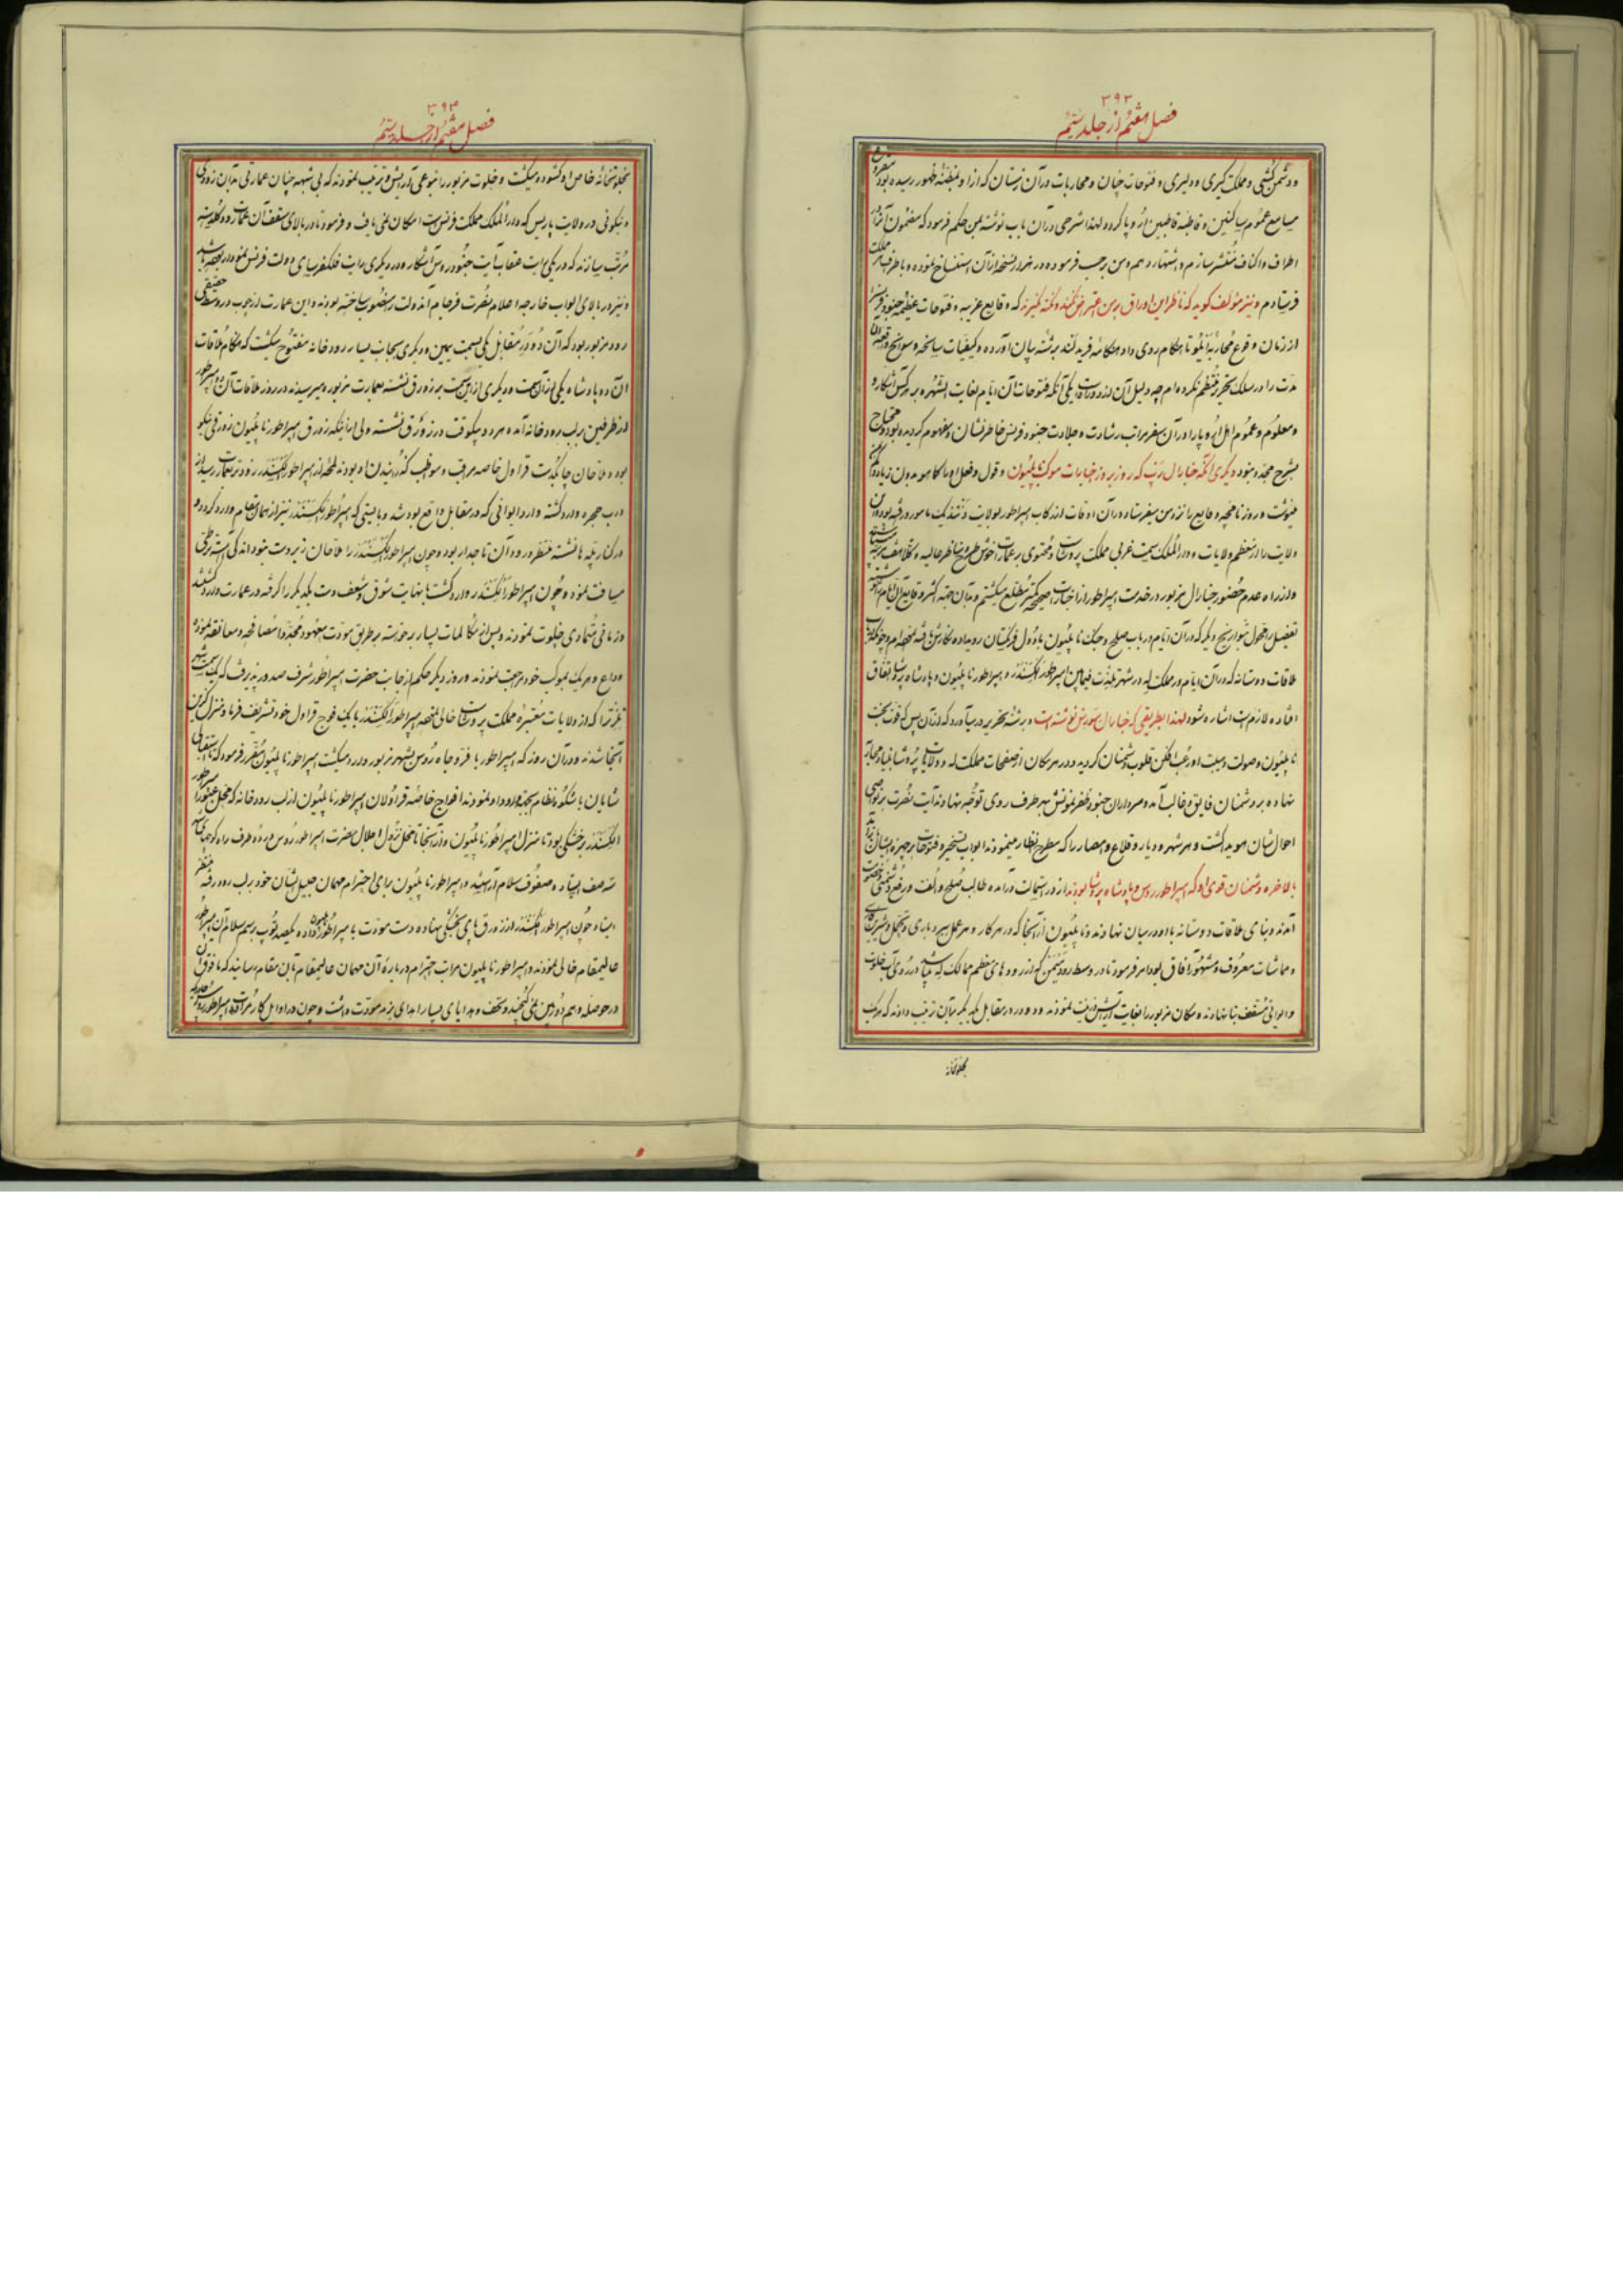 ۳۹۲
فصل هفتم از جلد سیم
و دشمن کشی و مملکت گیری و دلیری و فتوحات چنان و محاربات در آن زمستان که از او بمنصّهٔ ظهور رسیده بود
مسامع عموم ساکنین و قاطبهٔ قاطنین اروپا گردد لهذا شرحی در آن باب نوشته بمن حکم فرمود که مضمون آنرا در
اطراف و اکناف منتشر سازم و اشتهار دهم و من برحسب فرموده در هزار نسخه از آن استنساخ نموده و باطراف مملکت
فرستادم و نیز مؤلف گوید که ناظر این اوراق بر من اعتراض نکنند و نکته نگیرند که وقایع غریبه و فتوحات عظیمه جنود فرنس را
از زمان وقوع محاربه ایلو تا هنگام روی داد هنگامه فریدلند برشته بیان آورده و کیفیات سانحه و سوانح واقعه آن
مدت را در سلک تحریر منتظم نکرده‌ام چه دلیل آن از دو راه است یکی آنکه فتوحات آن ایام بغایت اشتهر بر هرکس آشکار و
معلوم و عموم اهل اروپا را در آن سفر مراتب رشادت و جلادت جنود فرنس خاطرنشان و مفهوم گردیده بود و محتاج
بشرح مجدد نبود دیگری آنکه جنرال رپ که روز بروز اخبارات موکب ناپلیون و قول و فعل او را کما هو بدون زیاد و کم
مینوشت و روزنامچه وقایع را نزد من میفرستاد در آن اوقات از رکاب امپراطور بولایت دنتذیک مامور و رفته بود و آن
ولایت را در معظم ولایات و دار الملک سمت غربی مملکت پروس است و محتوی بر عمارات خوش طرح مناظر عالیه
و از راه عدم حضور جنرال مزبور در خدمت امپراطور از اخبارات صحیحه کمتر مطلع میگشتم و بدان جهته اکثر وقایع آن ایام
تفصیل را محول بتواریخ دیگر که در آن ایام در باب صلح و جنگ ناپلیون با دول فرنگستان رو بداده نگارش یافته
ملاقات دوستانه که در آن ایام در مملکت له در شهر تیلذت فیمابین امپراطور الکسندر و امپراطور ناپلیون و پادشاه پروس اتفاق
افتاده لازم است اشاره شود لهذا بطریقی که جنرال سوری نوشته است در رشته تحریر در میآورد که از آن پس که قوت بخت
ناپلیون و صولت و هیبت او رعب افکن قلوب دشمنان گردید و در هر مکان از صفحات مملکت له و ولایات پروس بنیاد محاربه
نهاده بر دشمنان فایق و غالب آمد و سرداران جنود ظفرنمونش بهر طرف روی توجه نهادند آیت نصرت بر نواصی
احوالشان هویدا گشت و هر شهر و دیار و قلاع و حصار را که مطرح انظار مینمودند ابواب تسخیر و فتوحات بر چهره ایشان
بالاخره دشمنان قوی او که امپراطور روس و پادشاه پروس بودند از در استیمان درآمده طالب صلح و الفت و رفع دشمنی و خصومت
آمدند و بنای ملاقات دوستانه با او در میان نهادند و ناپلیون از آنجا که در هر کار و هر عمل
و معاشات معروف و مشهور آفاق بود امر فرمود تا در وسط رود نیمن که از رودهای معظم ممالک له میباشد در روی آب خلوت
و ایوانی مسقف بنا نهادند و مکان مزبور را بغایت آرایش و زینت نمودند و دو در در مقابل یکدیگر بآن ترتیب دادند که هر یک
بخلوتخانه
۳۹۳
فصل هفتم از جلد سیم
بخلوتخانه خاص او گشوده میگشت و خلوت مزبور را بنوعی آرایش و ترتیب نمودند که بی شبهه چنان عمارتی بدان زودی
و نیکوئی در ولایت پاریس که دار الملک مملکت فرنس است امکان نمی یافت و فرمود تا در بالای سقف آن عمارت دو گلدسته
مرتب سازند که در یکی رایت عقاب آیت جنود روس آشکار و در دیگری رایت فلکفرسای دولت فرنس نمودار باشد
و نیز در بالای ابواب خارجه اعلام نصرت فرجام آندولت را منصوب ساخته بودند و این عمارت از چوب در وسط حقیقی
رود مزبور بود که آن دو در مقابل یکی بسمت یمین و دیگری بجانب یسار رودخانه مفتوح میگشت که هنگام ملاقات
آن دو پادشاه یکی از آن سمت و دیگری از این سمت بر زورق نشسته بعمارت مزبوره میرسیدند در روز ملاقات آن دو امپراطور
از طرفین بر لب رودخانه آمده هر دو بیکوقت در زورق نشسته ولی از آنیکه زورق امپراطور ناپلیون زورقی نیکو
بوده و ملاحان چابکدست قراول خاصه مراقب و مواظب کذرانیدن او بودند لمحهٔ از امپراطور الکسندر زودتر بعمارت رسیده
درب حجره وارد گشته وارد ایوانی که در مقابل واقع بود شد و بایستی که امپراطور الکسندر نیز از همان مقام ورود کردی
در کنار پله‌ها نشسته منتظر ورود آن تاجدار بود و چون امپراطور الکسندر را ملاحان زبردست نبودند اندکی آهسته تر طی
مسافت نموده و چون امپراطور الکسندر وارد گشت با نهایت شوق و شعف دست یکدیگر را گرفته در عمارت وارد گشتند
و زمانی متمادی خلوت نمودند و پس از مکالمات بسیار برخواسته بر طریق مودت معهود مجددا مصافحه و معانقه نموده
وداع و هر یک بموکب خود مراجعت نمودند و روز دیگر حکم از جانب حضرت امپراطور شرف صدور پذیرفت که یک سمت شهر
تیلذت را که از ولایات معتبره مملکت پروس است خالی نموده امپراطور الکسندر با یک فوج قراول خود تشریف فرما و منزل گزین
آنجا شدند و در آن روز که امپراطور با فر و جاه روس بشهر مزبور وارد میگشت امپراطور ناپلیون مقرر فرمود که
شایان با شکوه و نظام بجهته ورود او نمودند افواج خاصه قراولان امپراطور ناپلیون از لب رودخانه که محل عبور امپراطور
الکسندر بر خشکی بود تا منزل امپراطور ناپلیون و از آنجا تا محل نزول اجلال حضرت امپراطور روس در دو طرف راه کوچهای
سه صف ایستاده و صفوف سلام آراستند و امپراطور ناپلیون برای احترام مهمان جلیل الشان خود بر لب رود رفته منتظر
ایستاد چون امپراطور الکسندر از زورق پای بخشکی نهاده دست مودت با امپراطور ناپلیون داده یکصد توپ برسم سلام آن امپراطور
عالیمقام خالی نمودند و امپراطور ناپلیون مراتب احترام درباره آن مهمان عالیمقام بآن مقام رسانید که مافوق آن
در حوصله وهم دوربین نمی گنجید و تحف و هدایای بسیار اهدای بزم مودت داشت و چون در اوایل کار